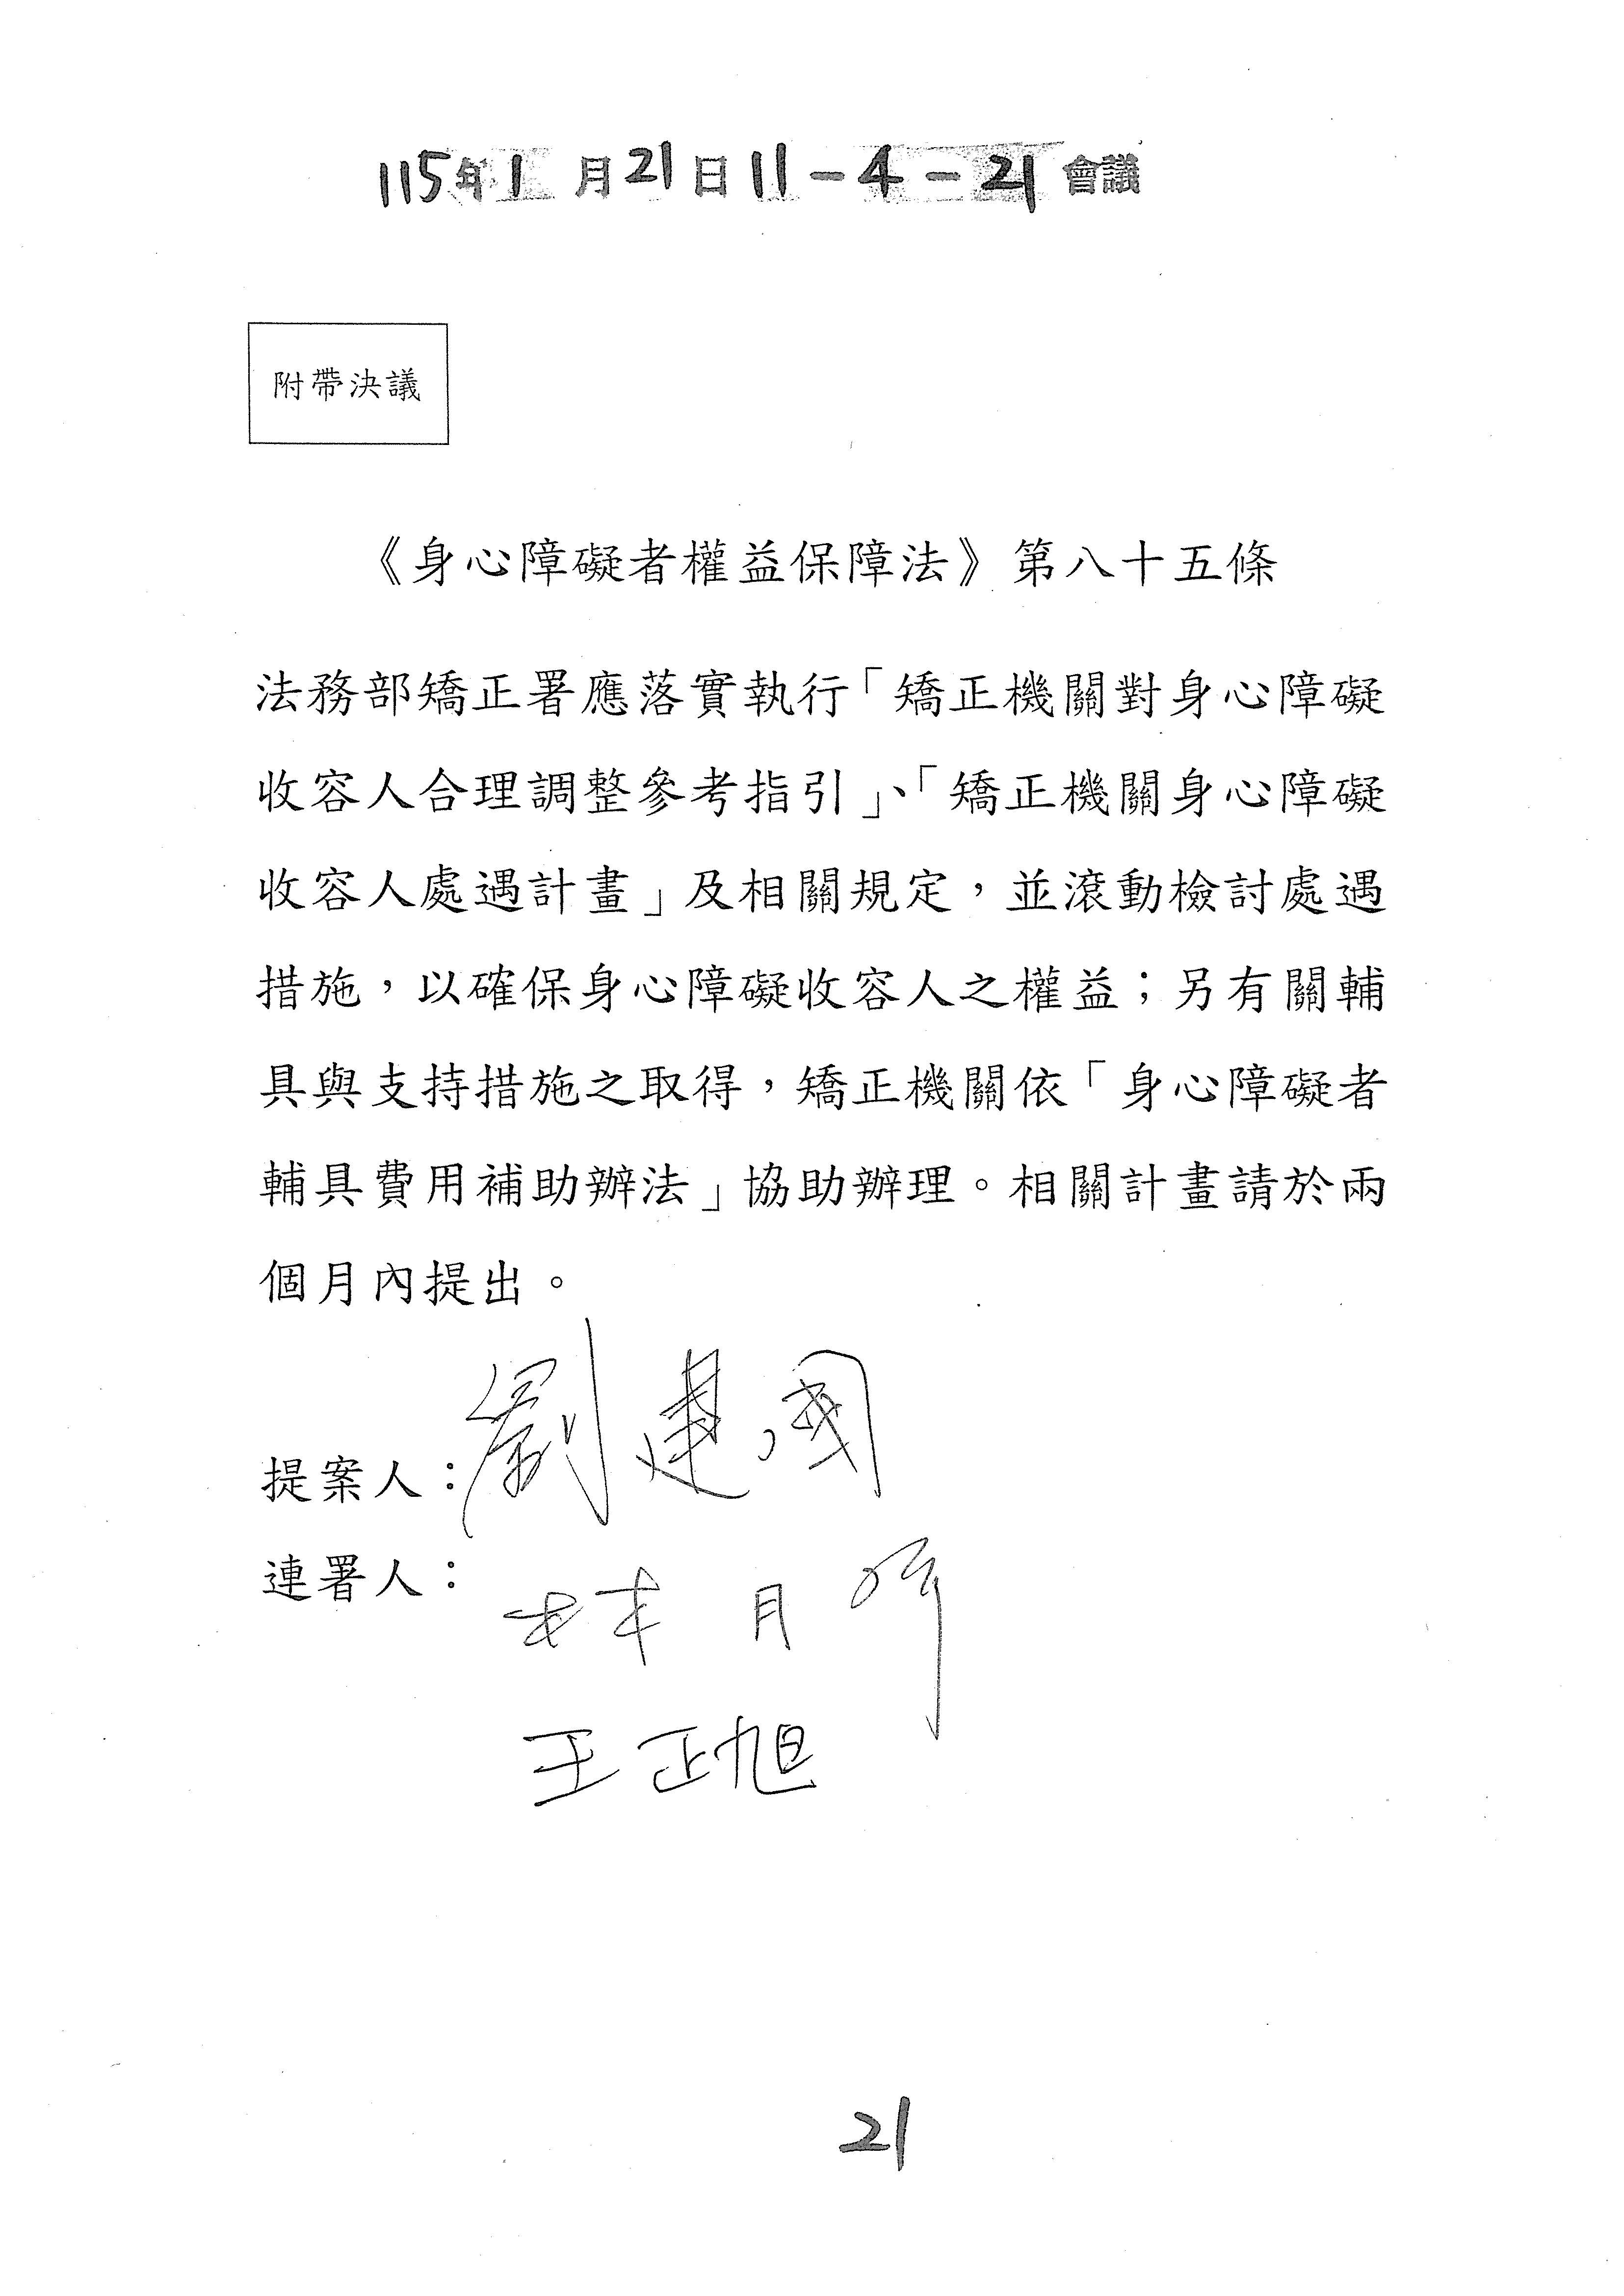 115年1月21日11-4-21會議
附帶決議
《身心障礙者權益保障法》第八十五條
法務部矯正署應落實執行「矯正機關對身心障礙
收容人合理調整參考指引」、「矯正機關身心障礙
收容人處遇計畫」及相關規定，並滾動檢討處遇
措施，以確保身心障礙收容人之權益；另有關輔
具與支持措施之取得，矯正機關依「身心障礙者
輔具費用補助辦法」協助辦理。相關計畫請於兩
個月內提出。
提案人：劉建國
連署人：林月琴
王正旭
21